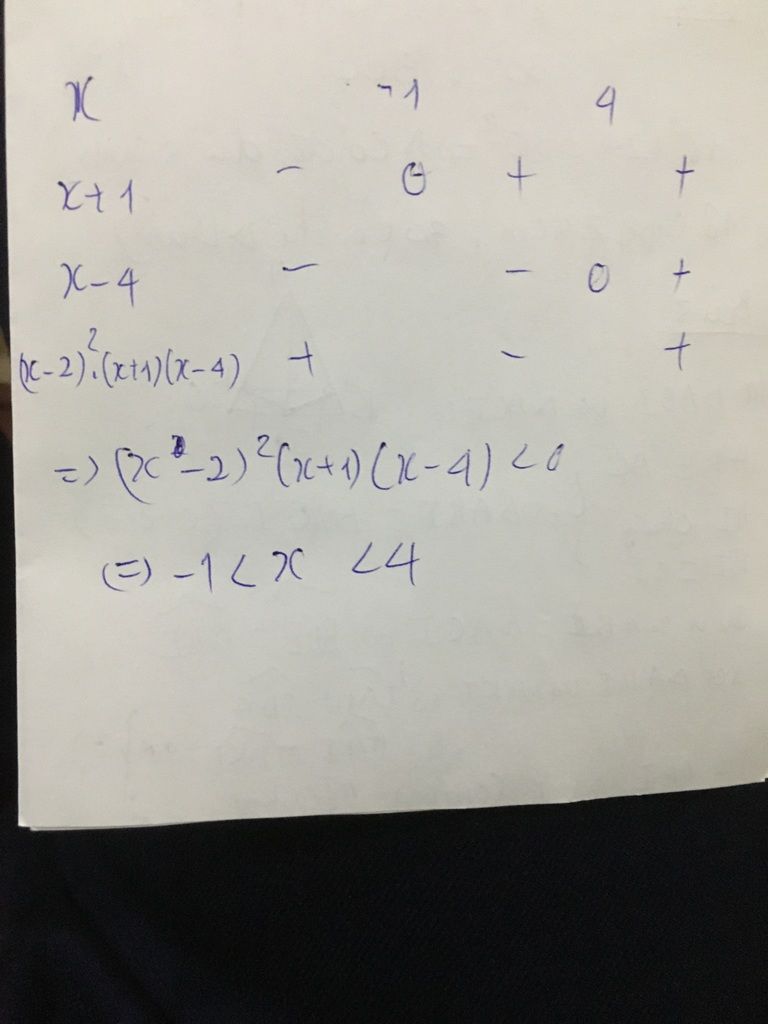 x -1 4
x+1 - 0 + +
x-4 - - 0 +
(x-2)².(x+1)(x-4) + - +
=> (x-2)²(x+1)(x-4) <0
(=) -1 < x < 4